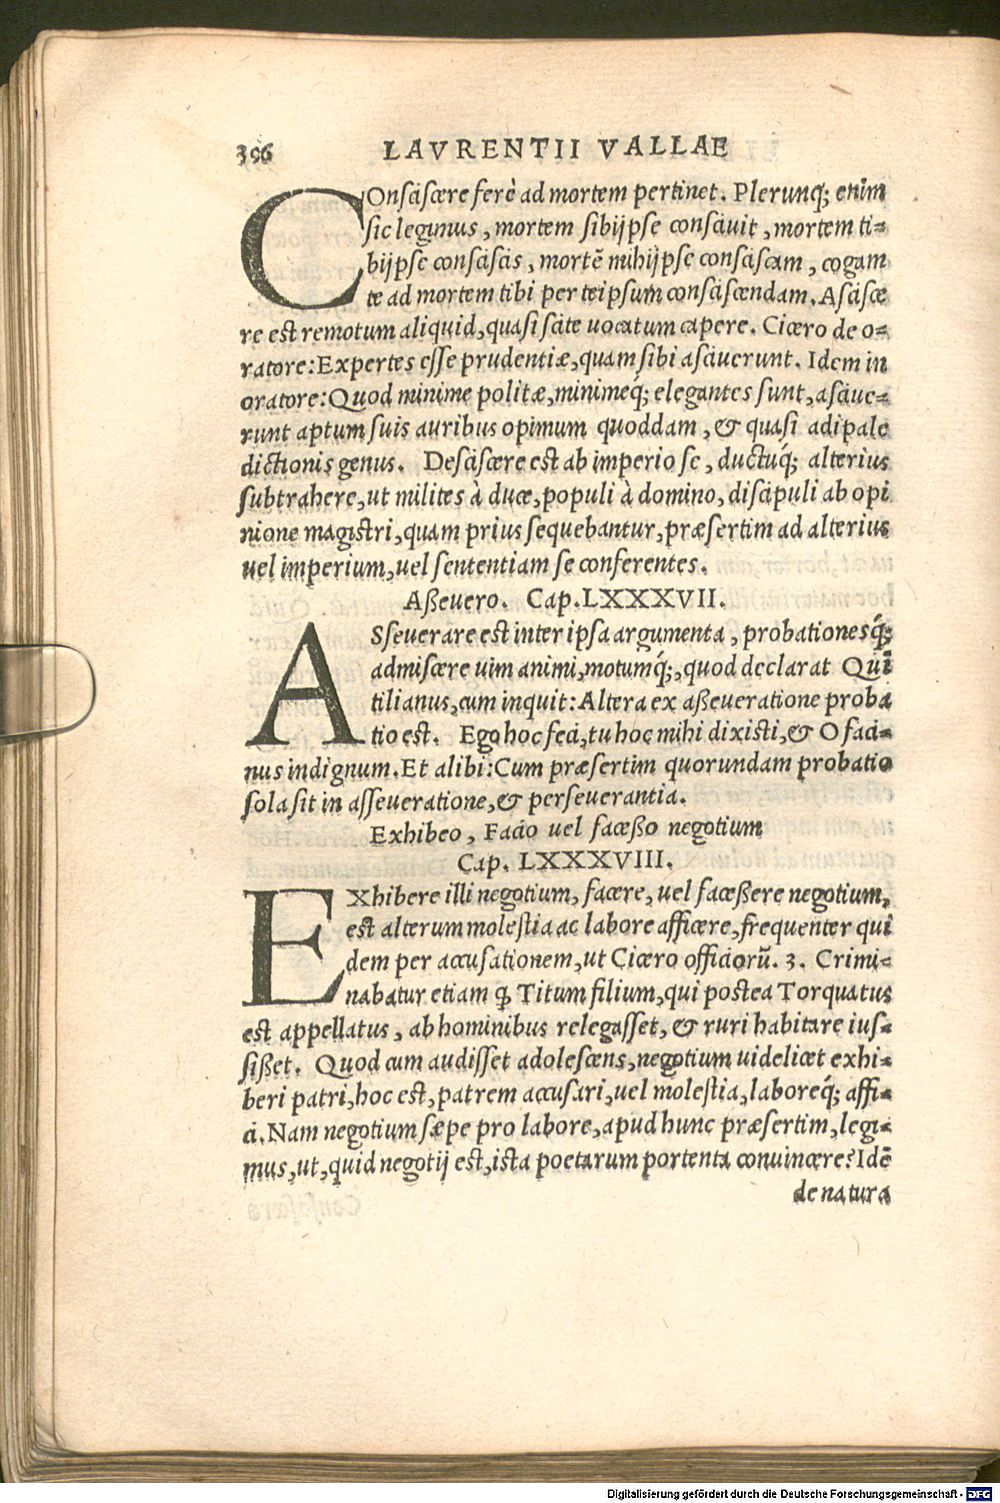 396 LAVRENTII VALLAE
COnsciscere ferè ad mortem pertinet. Plerunq; enim
sic legimus, mortem sibijpse consciuit, mortem ti-
bijpse consciscis, mortē mihijpse consciscam, cogam
te ad mortem tibi per teipsum consciscendam. Ascisce
re est remotum aliquid, quasi scite uocatum capere. Cicero de o-
ratore: Expertes esse prudentiæ, quam sibi asciuerunt. Idem in
oratore: Quod minime politæ, minimeq́; elegantes sunt, asciue-
runt aptum suis auribus opimum quoddam, & quasi adipale
dictionis genus. Desciscere est ab imperio se, ductuq́; alterius
subtrahere, ut milites à duce, populi à domino, discipuli ab opi
nione magistri, quam prius sequebantur, præsertim ad alterius
uel imperium, uel sententiam se conferentes.
Aßeuero. Cap. LXXXVII.
ASseuerare est inter ipsa argumenta, probationesq́;
admiscere uim animi, motumq́;, quod declarat Quī
tilianus, cum inquit: Altera ex aßeueratione proba
tio est. Ego hoc feci, tu hoc mihi dixisti, & O faci-
nus indignum. Et alibi: Cum præsertim quorundam probatio
sola sit in asseueratione, & perseuerantia.
Exhibeo, Facio uel faceßo negotium
Cap. LXXXVIII.
EXhibere illi negotium, facere, uel faceßere negotium,
est alterum molestia ac labore afficere, frequenter qui
dem per accusationem, ut Cicero officiorū. 3. Crimi-
nabatur etiam ꝙ Titum filium, qui postea Torquatus
est appellatus, ab hominibus relegasset, & ruri habitare ius-
sißet. Quod cum audisset adolescens, negotium uidelicet exhi-
beri patri, hoc est, patrem accusari, uel molestia, laboreq́; affi-
ci. Nam negotium sæpe pro labore, apud hunc præsertim, legi-
mus, ut, quid negotij est, ista poetarum portenta conuincere? Idē
de natura
Digitalisierung gefördert durch die Deutsche Forschungsgemeinschaft - DFG